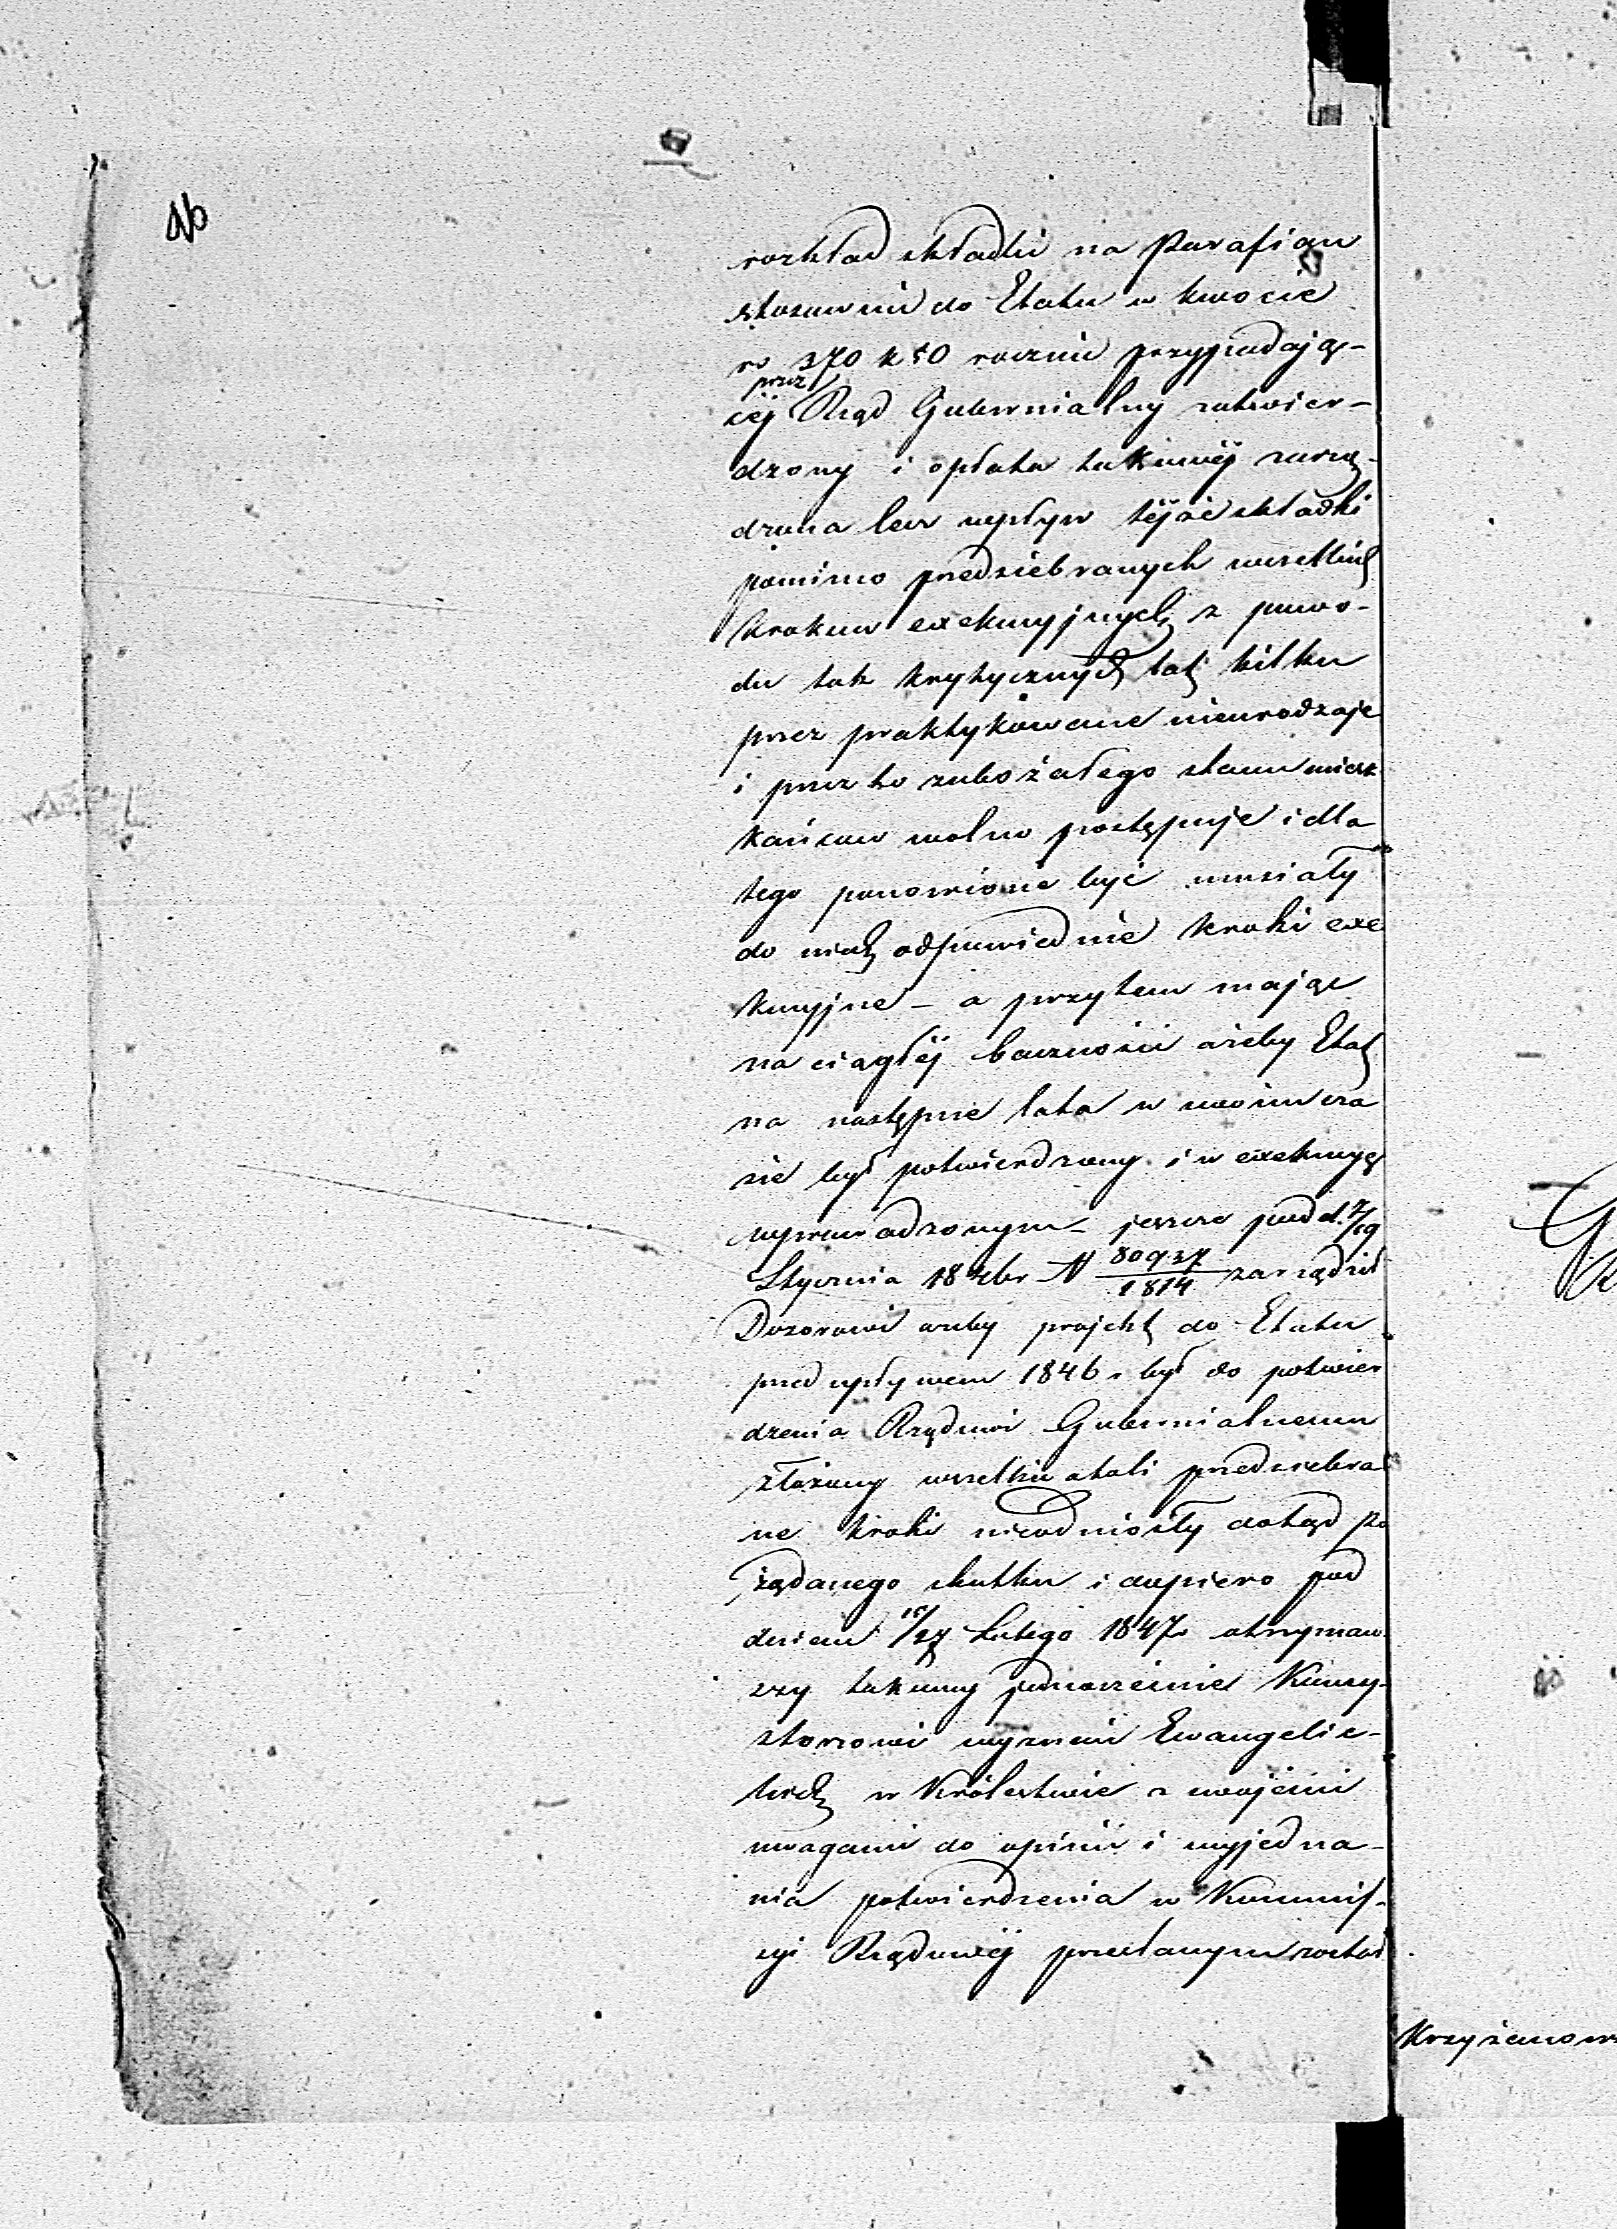 46
rozkład składki na Parafian
stosownie do Etatu w kwocie
rs 370 k 50 rocznie przypadają-
cej przez Rząd Gubernialny zatwier-
dzony i opłata takowéj zarzą-
dzona lecz wpływ téjże składki
pomimo przedsiebranych wszelkich
kroków exekucyjnych z powo-
du tak krytycznych lat kilku
przez praktykowane nieurodzaje
i przez to zubożałego stanu miesz
kańców wolno postępuje i dla
tego ponowione być musiały
do nich odpowiednie kroki exe
kucyjne – a przytem mając
na ciągłéj baczności ażeby Etat
na następne lata w swoim cza
sie był potwierdzony i w exekucyą
wprowadzonym – jeszcze pod d. 7/19
Stycznia 1846 r N 80937/1814 zarządził
Dozorowi ażeby projekt do Etatu
przed upływem 1846 r był do potwier
dzenia Rządowi Gubernialnemu
złożony wszelkie atoli przedsiebra
ne kroki nieodniosły dotąd po
żądanego skutku i dopiero pod
dniem 15/27 Lutego 1847 r otrzymaw
szy takowy ponownie Konsy-
storzowi wyznań Ewangelic-
kich w Królestwie z swojemi
uwagami do opinii i wyjedna-
nia potwierdzenia w Kommis-
syi Rządowéj przesłanym został
Krzyżanows